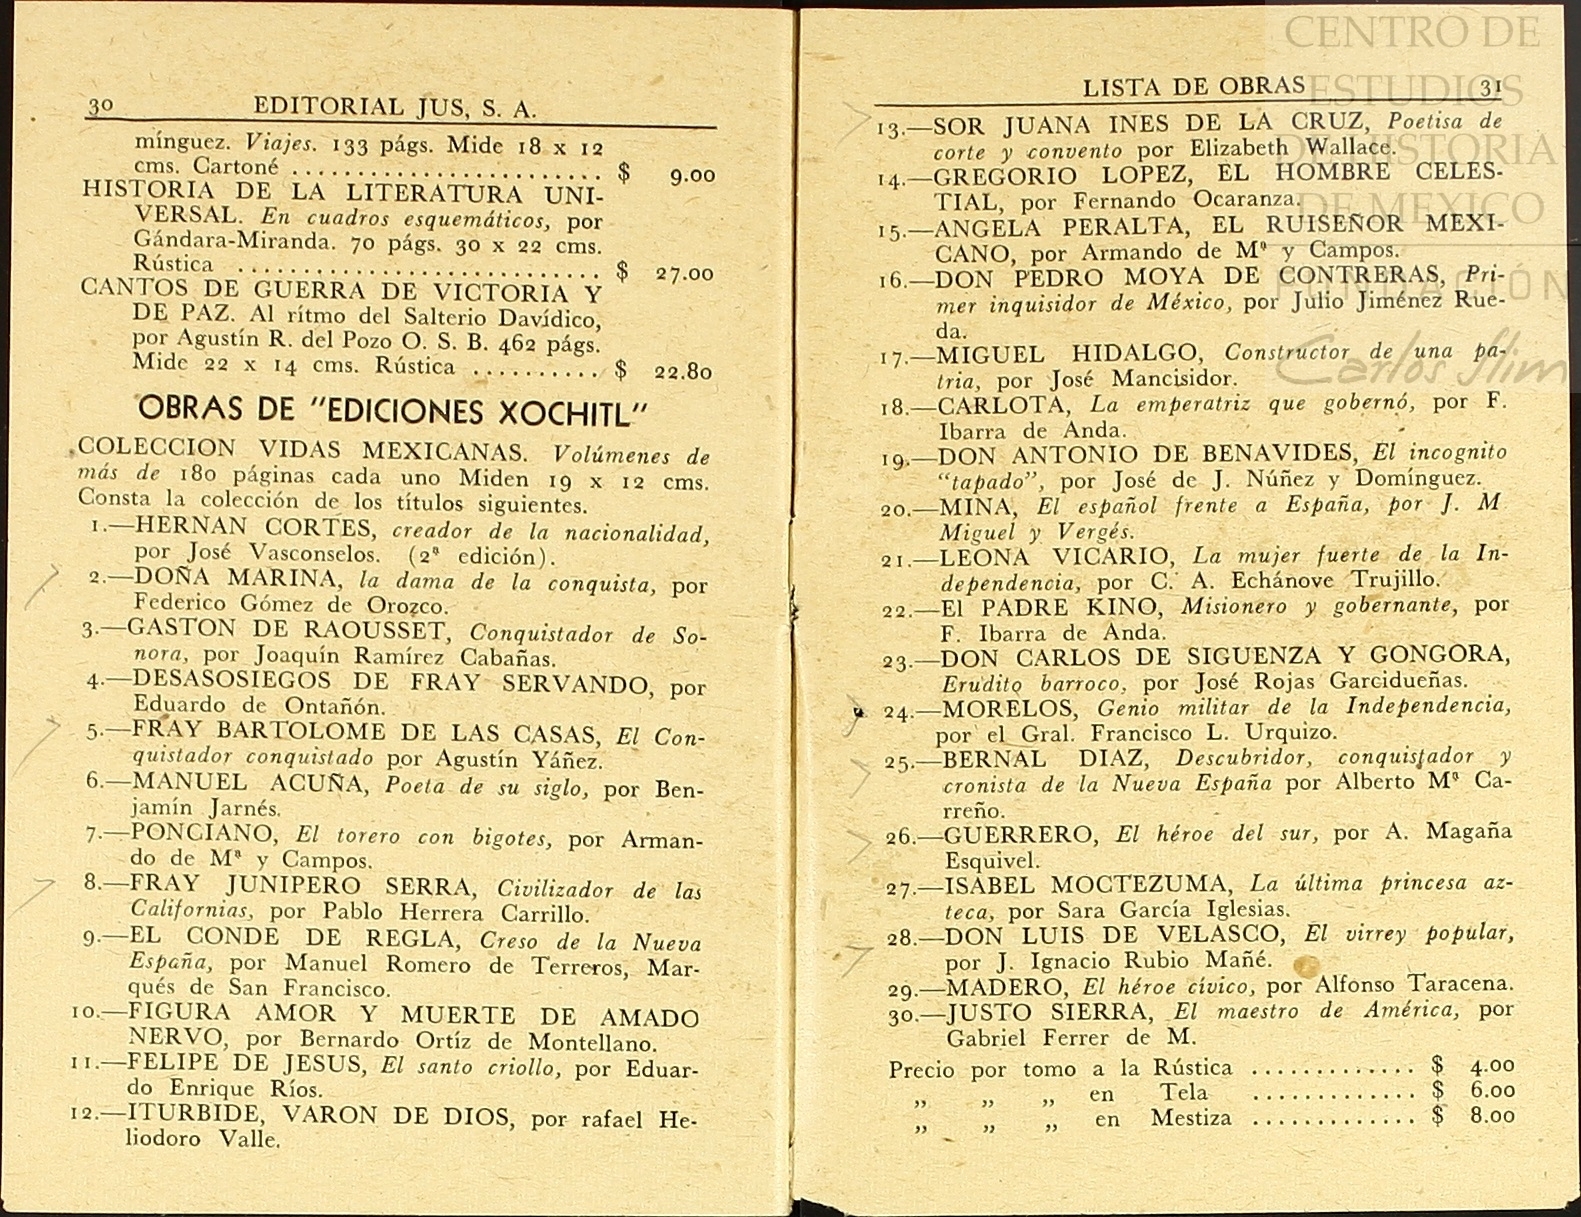 30 EDITORIAL JUS, S. A.
mínguez. Viajes. 133 págs. Mide 18 x 12
cms. Cartoné ........................ $ 9.00
HISTORIA DE LA LITERATURA UNI-
VERSAL. En cuadros esquemáticos, por
Gándara-Miranda. 70 págs. 30 x 22 cms.
Rústica ............................ $ 27.00
CANTOS DE GUERRA DE VICTORIA Y
DE PAZ. Al rítmo del Salterio Davídico,
por Agustín R. del Pozo O. S. B. 462 págs.
Mide 22 x 14 cms. Rústica .......... $ 22.80
OBRAS DE "EDICIONES XOCHITL"
COLECCION VIDAS MEXICANAS. Volúmenes de
más de 180 páginas cada uno Miden 19 x 12 cms.
Consta la colección de los títulos siguientes.
1.—HERNAN CORTES, creador de la nacionalidad,
por José Vasconselos. (2ª edición).
2.—DOÑA MARINA, la dama de la conquista, por
Federico Gómez de Orozco.
3.—GASTON DE RAOUSSET, Conquistador de So-
nora, por Joaquín Ramírez Cabañas.
4.—DESASOSIEGOS DE FRAY SERVANDO, por
Eduardo de Ontañón.
5.—FRAY BARTOLOME DE LAS CASAS, El Con-
quistador conquistado por Agustín Yáñez.
6.—MANUEL ACUÑA, Poeta de su siglo, por Ben-
jamín Jarnés.
7.—PONCIANO, El torero con bigotes, por Arman-
do de Mª y Campos.
8.—FRAY JUNIPERO SERRA, Civilizador de las
Californias, por Pablo Herrera Carrillo.
9.—EL CONDE DE REGLA, Creso de la Nueva
España, por Manuel Romero de Terreros, Mar-
qués de San Francisco.
10.—FIGURA AMOR Y MUERTE DE AMADO
NERVO, por Bernardo Ortíz de Montellano.
11.—FELIPE DE JESUS, El santo criollo, por Eduar-
do Enrique Ríos.
12.—ITURBIDE, VARON DE DIOS, por rafael He-
liodoro Valle.
LISTA DE OBRAS 31
13.—SOR JUANA INES DE LA CRUZ, Poetisa de
corte y convento por Elizabeth Wallace.
14.—GREGORIO LOPEZ, EL HOMBRE CELES-
TIAL, por Fernando Ocaranza.
15.—ANGELA PERALTA, EL RUISEÑOR MEXI-
CANO, por Armando de Mª y Campos.
16.—DON PEDRO MOYA DE CONTRERAS, Pri-
mer inquisidor de México, por Julio Jiménez Rue-
da.
17.—MIGUEL HIDALGO, Constructor de una pa-
tria, por José Mancisidor.
18.—CARLOTA, La emperatriz que gobernó, por F.
Ibarra de Anda.
19.—DON ANTONIO DE BENAVIDES, El incognito
"tapado", por José de J. Núñez y Domínguez.
20.—MINA, El español frente a España, por J. M
Miguel y Vergés.
21.—LEONA VICARIO, La mujer fuerte de la In-
dependencia, por C. A. Echánove Trujillo.
22.—El PADRE KINO, Misionero y gobernante, por
F. Ibarra de Anda.
23.—DON CARLOS DE SIGUENZA Y GONGORA,
Erudito barroco, por José Rojas Garcidueñas.
24.—MORELOS, Genio militar de la Independencia,
por el Gral. Francisco L. Urquizo.
25.—BERNAL DIAZ, Descubridor, conquistador y
cronista de la Nueva España por Alberto Mª Ca-
rreño.
26.—GUERRERO, El héroe del sur, por A. Magaña
Esquivel.
27.—ISABEL MOCTEZUMA, La última princesa az-
teca, por Sara García Iglesias.
28.—DON LUIS DE VELASCO, El virrey popular,
por J. Ignacio Rubio Mañé.
29.—MADERO, El héroe cívico, por Alfonso Taracena.
30.—JUSTO SIERRA, El maestro de América, por
Gabriel Ferrer de M.
Precio por tomo a la Rústica ............. $ 4.00
„ „ „ en Tela ............. $ 6.00
„ „ „ en Mestiza ............. $ 8.00
CENTRO DE
ESTUDIOS
DE HISTORIA
DE MEXICO
FUNDACIÓN
Carlos Slim